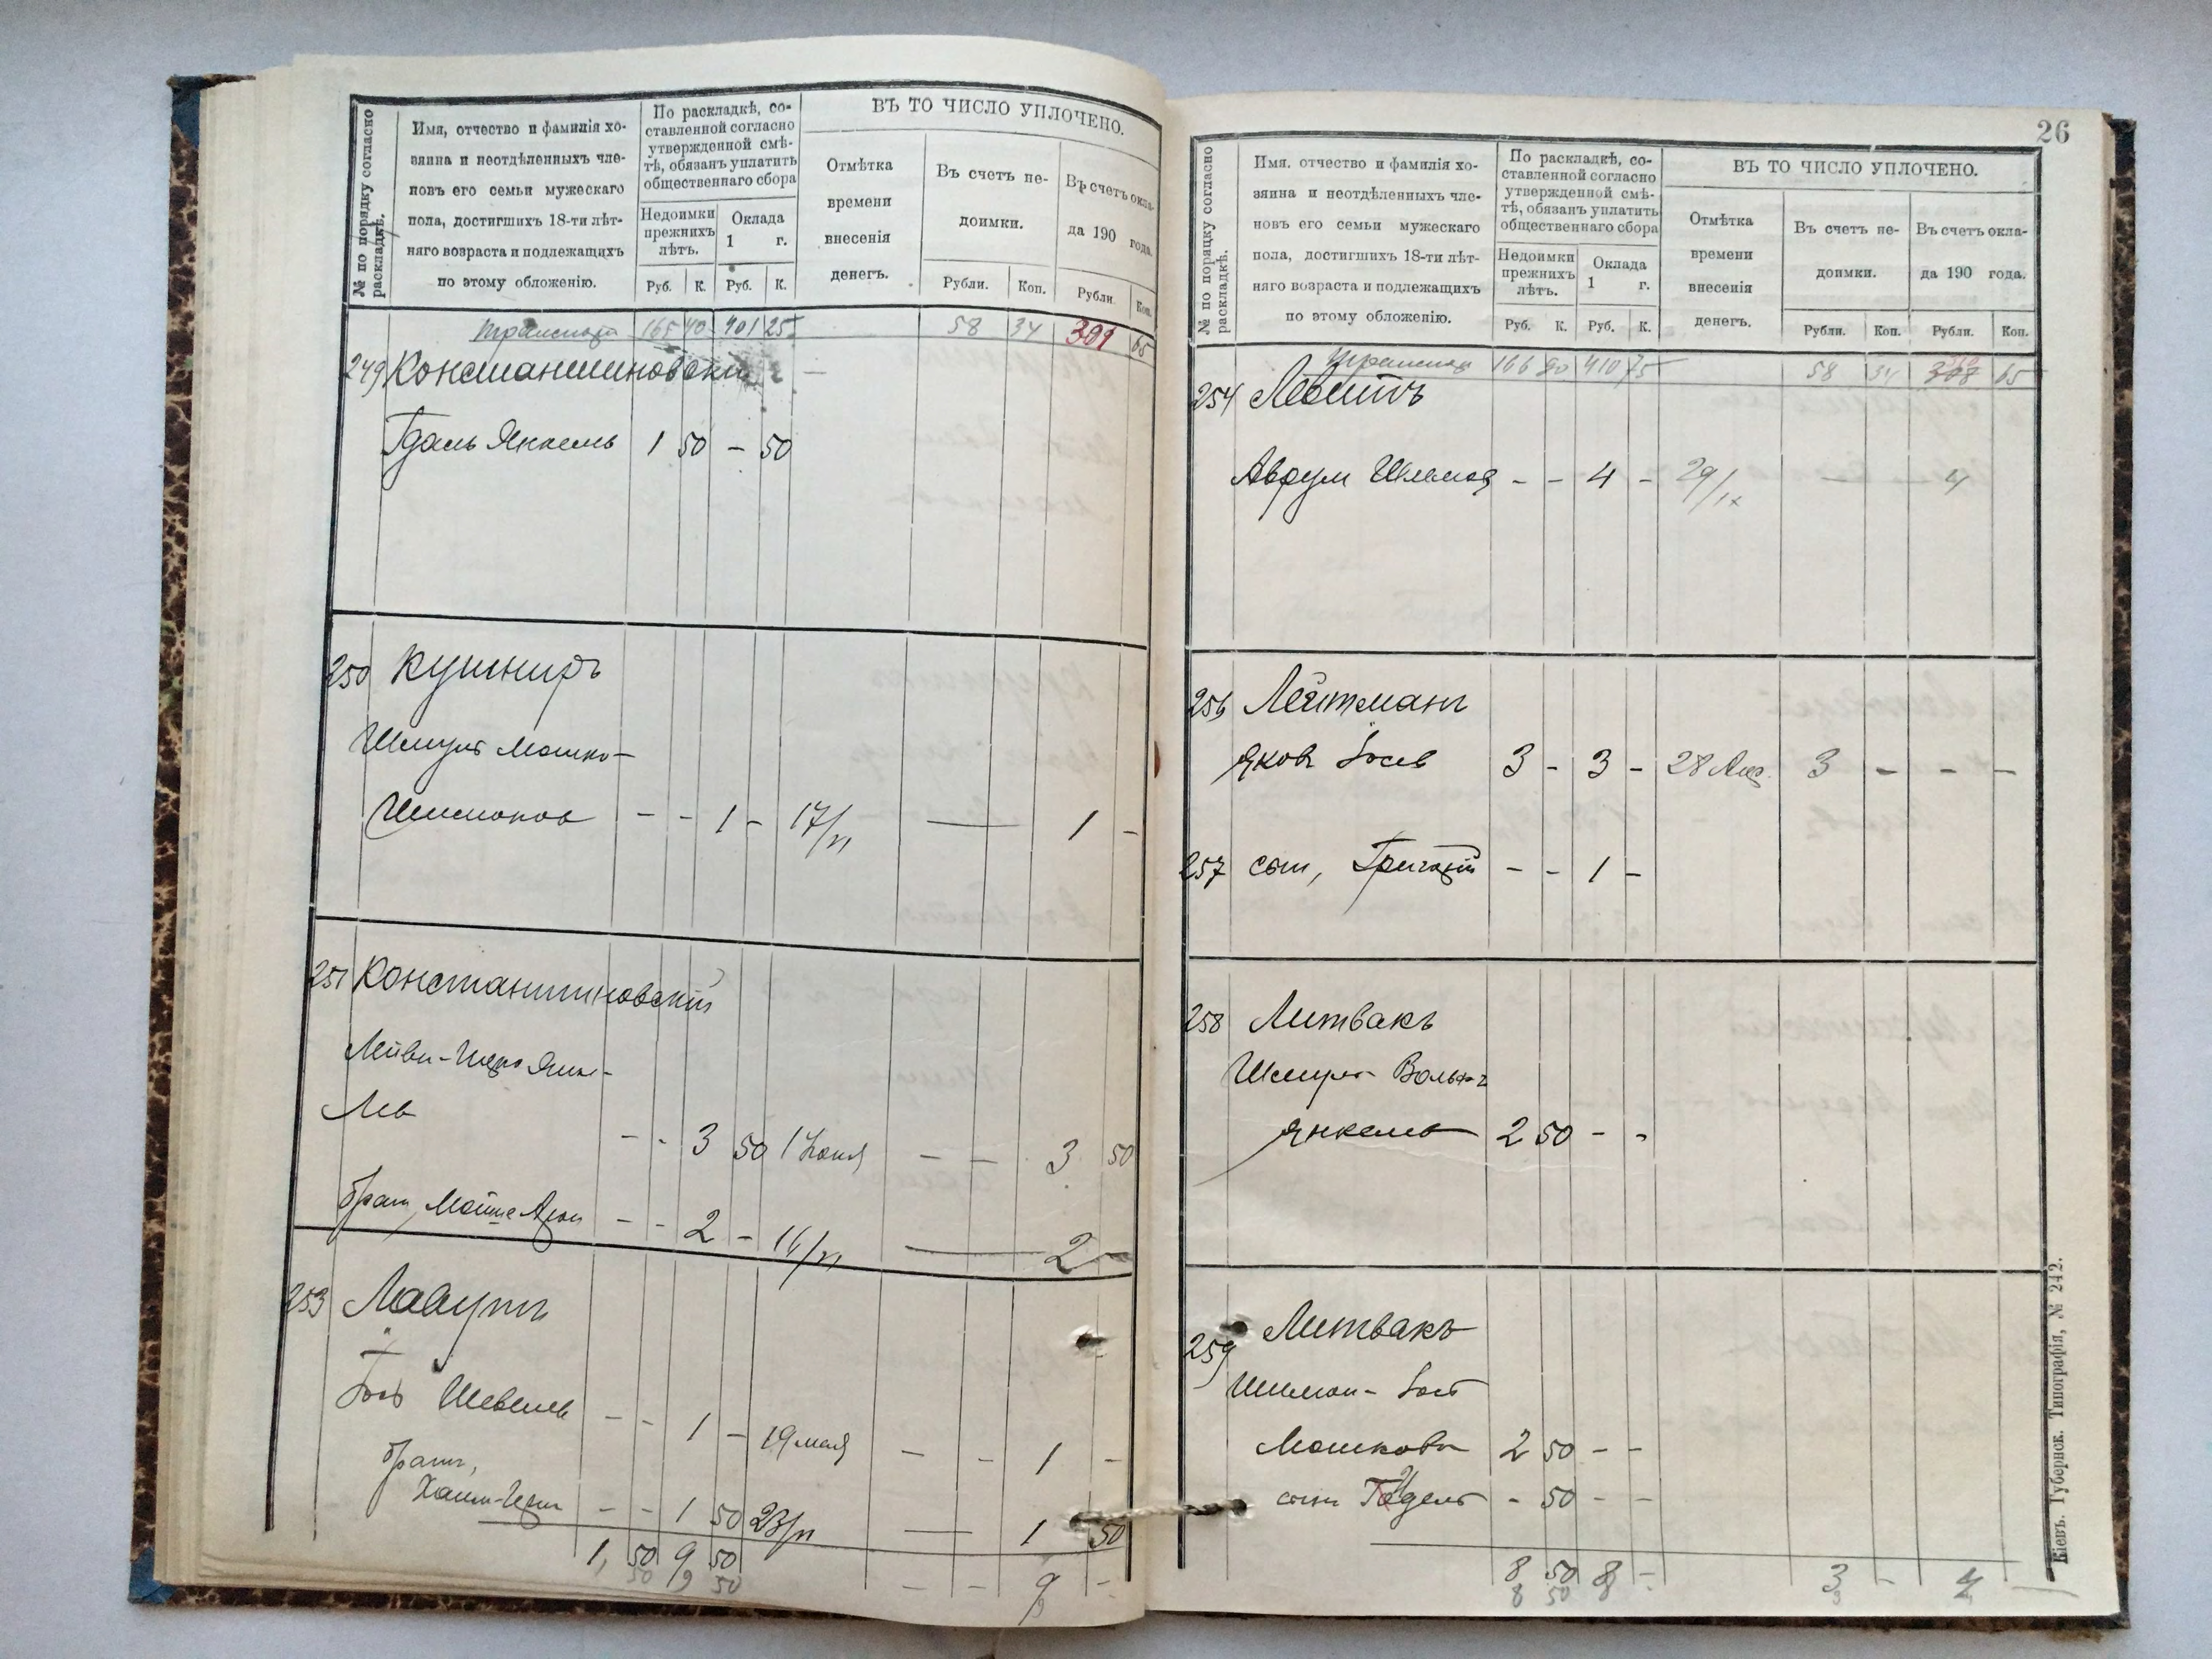 № по порядку согласно раскладкѣ.
Имя, отчество и фамилія хо-
зяина и неотдѣленныхъ чле-
новъ его семьи мужескаго
пола, достигшихъ 18-ти лѣт-
няго возраста и подлежащихъ
по этому обложенію.
По раскладкѣ, со-
ставленной согласно
утвержденной смѣ-
тѣ, обязанъ уплатить
общественнаго сбора
Недоимки
прежнихъ
лѣтъ.
Оклада
1 г.
Руб. К. Руб. К.
ВЪ ТО ЧИСЛО УПЛОЧЕНО.
Отмѣтка
времени
внесенія
денегъ.
Въ счетъ не-
доимки.
Рубли. Коп.
Въ счетъ окла-
да 190 года.
Рубли. Коп.
Транспорт 165 40 401 25 58 34 301 65
249 Константиновскій
Гдаль Янкель 1 50 - 50
250 Кушниръ
Шмуль Мошко-
Шимонов - - 1 - 17/VI — 1 -
251 Константиновскій
Лейви-
Лев - - 3 50 1 Іюня - - 3 50
брат, Мойше - - 2 - 16/VI — 2 -
253 Лавутъ
Іось Шевель - - 1 - 19 мая - - 1 -
братъ,
Хаим- - - 1 50 23/VI — 1 50
1 50 9 50 - - 9 -
50 9 50 9
26
№ по порядку согласно раскладкѣ.
Имя, отчество и фамилія хо-
зяина и неотдѣленныхъ чле-
новъ его семьи мужескаго
пола, достигшихъ 18-ти лѣт-
няго возраста и подлежащихъ
по этому обложенію.
По раскладкѣ, со-
ставленной согласно
утвержденной смѣ-
тѣ, обязанъ уплатить
общественнаго сбора
Недоимки
прежнихъ
лѣтъ.
Оклада
1 г.
Руб. К. Руб. К.
ВЪ ТО ЧИСЛО УПЛОЧЕНО.
Отмѣтка
времени
внесенія
денегъ.
Въ счетъ не-
доимки.
Рубли. Коп.
Въ счетъ окла-
да 190 года.
Рубли. Коп.
Транспорт 166 90 410 75 58 34 310 65
254 Левитъ
Аврум - - 4 - 29/IX — 4
256 Лейтманъ
Яковъ Іосев 3 - 3 - 28 Апр. 3 - - -
257 сын, Григорій - - 1 -
258 Литвакъ
Шмуль-Вольф
Янкель 2 50 - -
259 Литвакъ
Шимон-Іось
Мошковъ 2 50 - -
сынъ - 50 - -
8 50 8 - 3 - 4
8 50 8 3
Кіевъ. Губернск. Типографія, № 242.